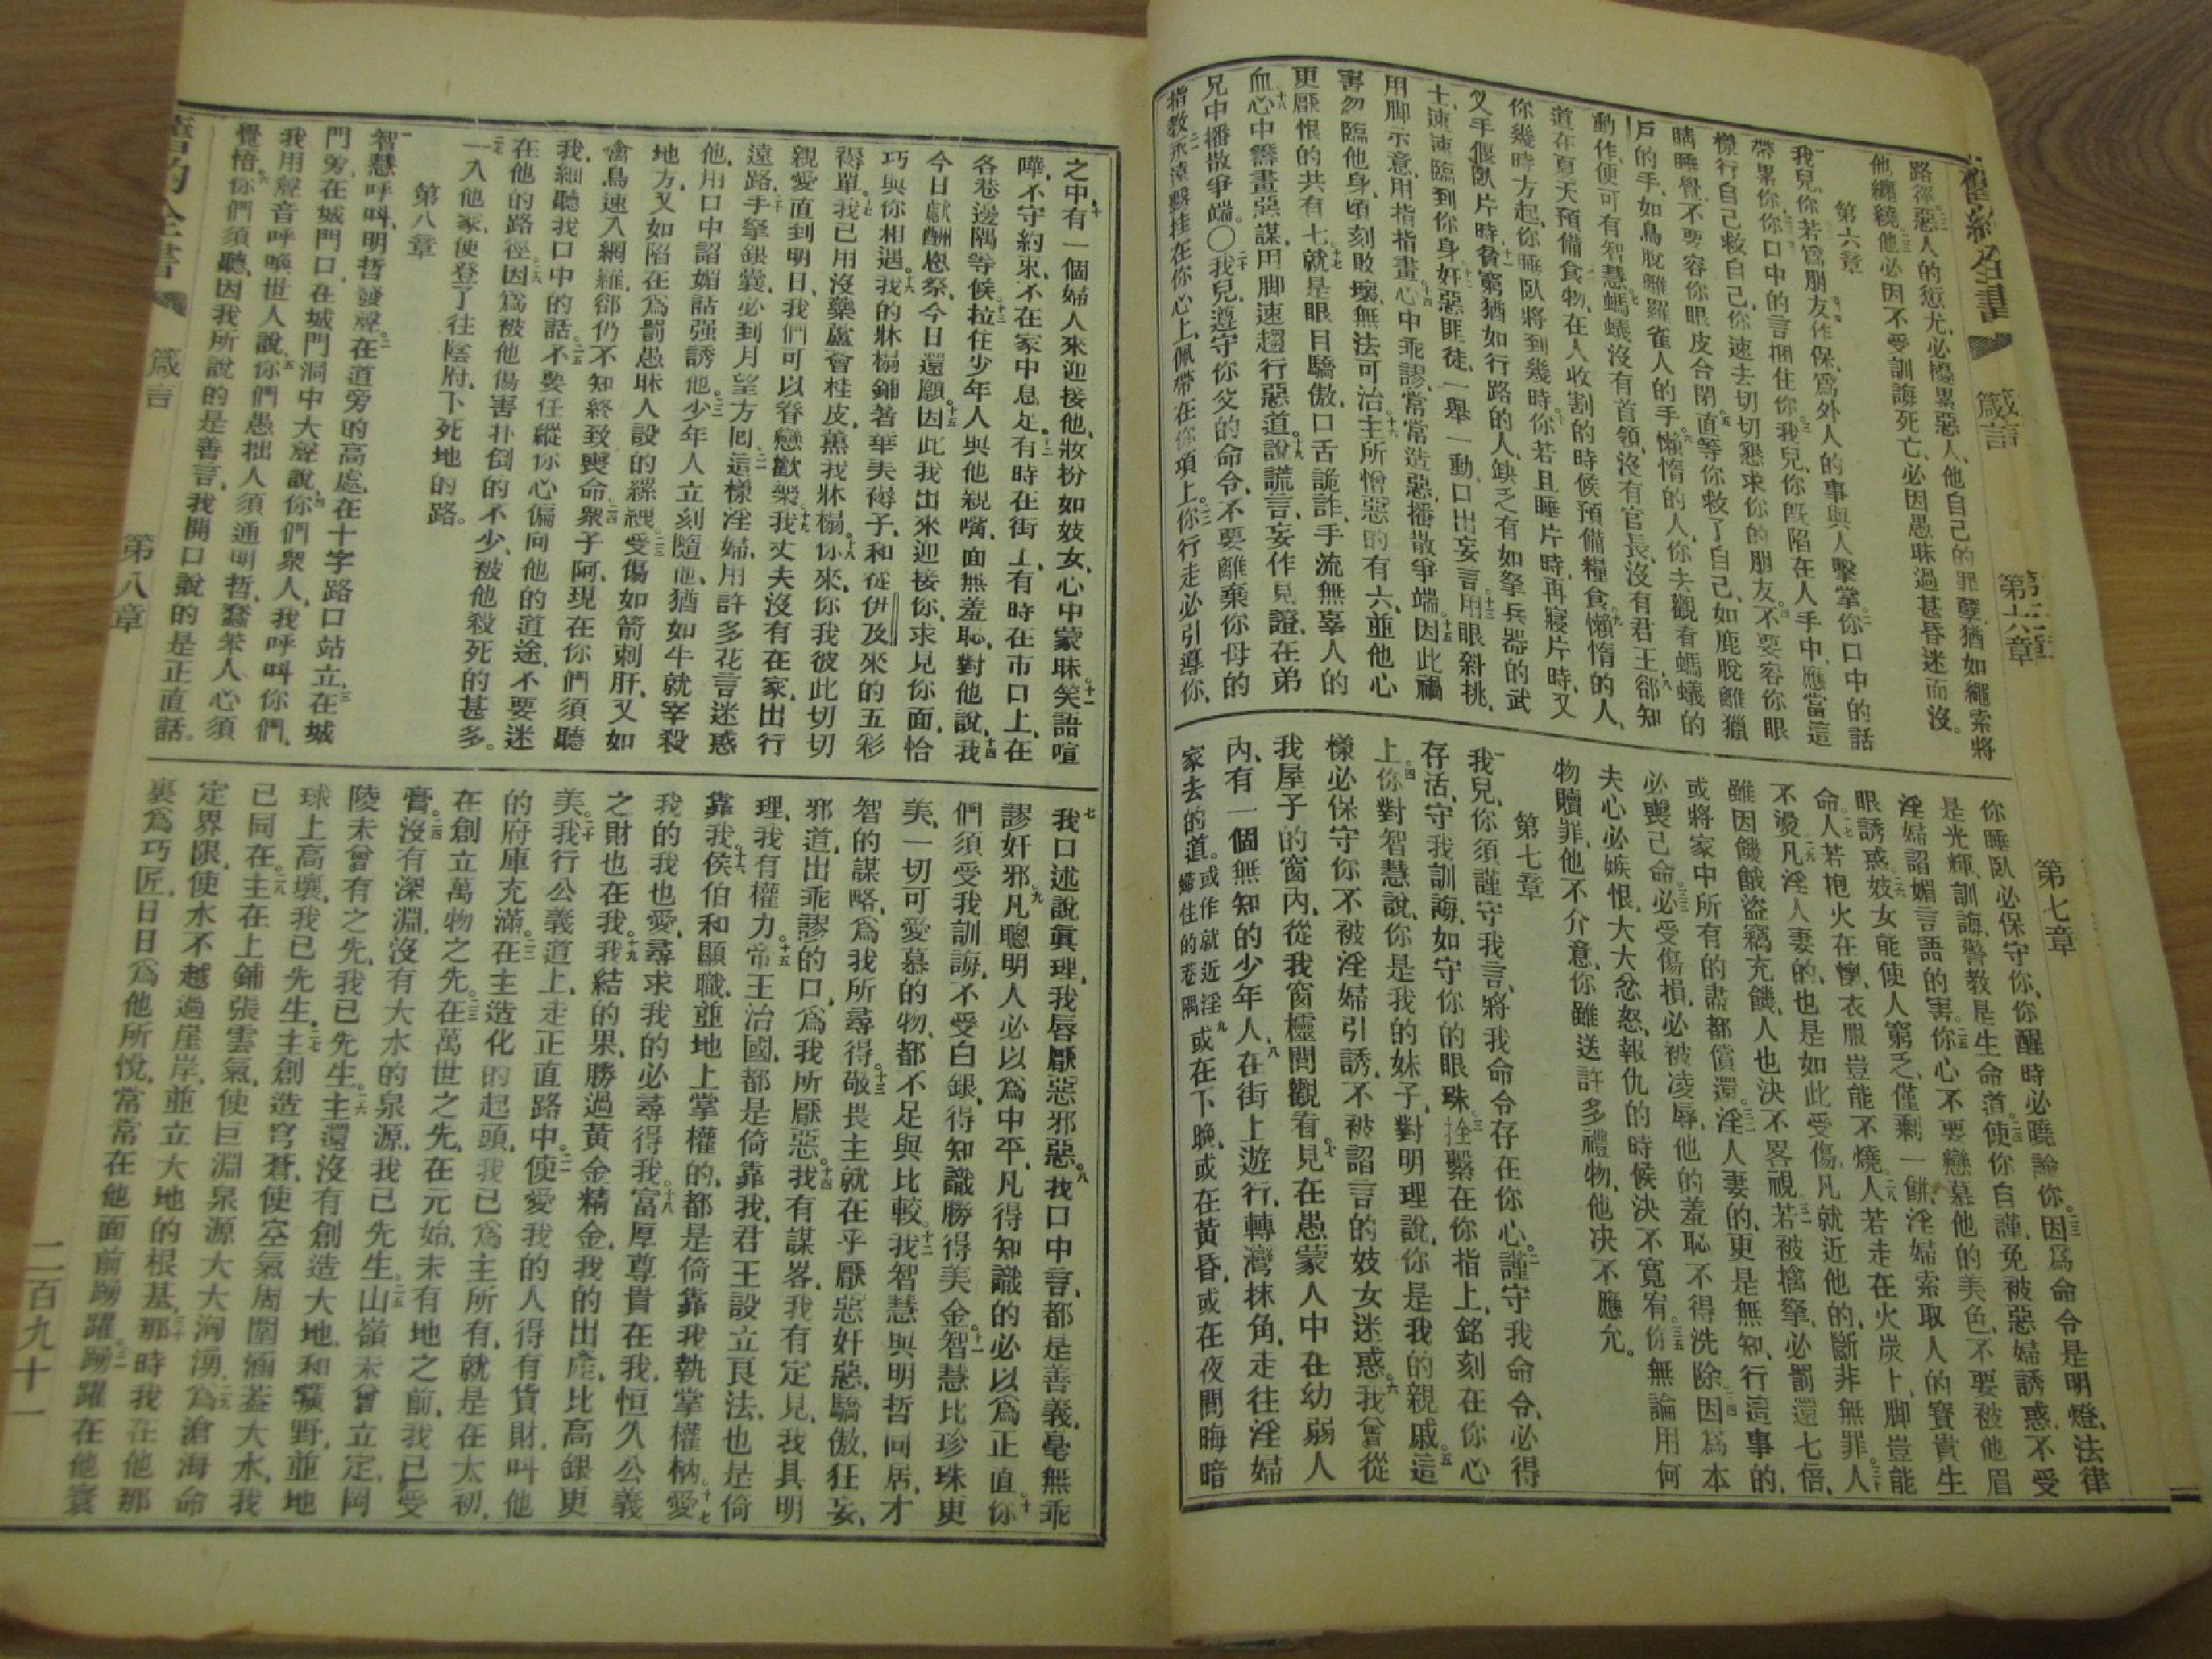 舊約全書 箴言 第五章 第六章 第七章
路徑惡人的愆尤必擾累惡人他自己的罪孽猶如繩索將
他纏繞他必因不受訓誨死亡必因愚昧過甚昏迷而沒
第六章
我兒你若為朋友作保為外人的事與人擊掌你口中的話
帶累你你口中的言捆住你我兒你既陷在人手中應當這
樣行自己救自己你速去切切懇求你的朋友不要容你眼
睛睡覺不要容你眼皮合閉直等你救了自己如鹿脫離獵
戶的手如鳥脫離羅雀人的手懶惰的人你去觀看螞蟻的
動作便可有智慧螞蟻沒有首領沒有官長沒有君王卻知
道在夏天預備食物在人收割的時候預備糧食懶惰的人
你幾時方起你睡臥將到幾時你若且睡片時再寢片時又
叉手偃臥片時貧窮猶如行路的人缺乏有如拏兵器的武
士速速臨到你身奸惡匪徒一舉一動口出妄言用眼斜挑
用脚示意用指指畫心中乖謬常常造惡播散爭端因此禍
害忽臨他身頃刻敗壞無法可治主所憎惡的有六並他心
更厭恨的共有七就是眼目驕傲口舌詭詐手流無辜人的
血心中籌畫惡謀用脚速趨行惡道說謊言妄作見證在弟
兄中播散爭端○我兒遵守你父的命令不要離棄你母的
指教永遠繫挂在你心上佩帶在你項上你行走必引導你
你睡臥必保守你你醒時必曉諭你因為命令是明燈法律
是光輝訓誨警教是生命道使你自謹免被惡婦誘惑不受
淫婦諂媚言語的害你心不要戀慕他的美色不要被他眉
眼誘惑妓女能使人窮乏僅剩一餅淫婦索取人的寶貴生
命人若抱火在懷衣服豈能不燒人若走在火炭上脚豈能
不燙凡淫人妻的也是如此受傷凡就近他的斷非無罪人
雖因饑餓盜竊充饑人也決不畧視若被擒拏必罰還七倍
或將家中所有的盡都償還淫人妻的更是無知行這事的
必喪己命必受傷損必被凌辱他的羞恥不得洗除因為本
夫心必嫉恨大大忿怒報仇的時候決不寬宥你無論用何
物贖罪他不介意你雖送許多禮物他决不應允
第七章
我兒你須謹守我言將我命令存在你心謹守我命令必得
存活守我訓誨如守你的眼珠拴繫在你指上銘刻在你心
上你對智慧說你是我的妹子對明理說你是我的親戚這
樣必保守你不被淫婦引誘不被諂言的妓女迷惑我曾從
我屋子的窗內從我窗櫺間觀看見在愚蒙人中在幼弱人
內有一個無知的少年人在街上遊行轉灣抹角走往淫婦
家去的道或作就近淫婦住的巷隅或在下晚或在黃昏或在夜間晦暗
之中有一個婦人來迎接他妝扮如妓女心中蒙昧笑語喧
嘩不守約束不在家中息足有時在街上有時在市口上在
各巷邊隅等候拉住少年人與他親嘴面無羞恥對他說我
今日獻酬恩祭今日還願因此我出來迎接你求見你面恰
巧與你相遇我的牀榻鋪著華美褥子和從伊及來的五彩
褥單我已用沒藥蘆會桂皮薰我牀榻你來你我彼此切切
親愛直到明日我們可以眷戀歡樂我丈夫沒有在家出行
遠路手拏銀囊必到月望方回這樣淫婦用許多花言迷惑
他用口中諂媚話强誘他少年人立刻隨他猶如牛就宰殺
地方又如陷在為罰愚昧人設的縲絏受傷如箭刺肝又如
禽鳥速入網羅卻仍不知終致喪命衆子阿現在你們須聽
我細聽我口中的話不要任縱你心偏向他的道途不要迷
在他的路徑因為被他傷害扑倒的不少被他殺死的甚多
一入他家便登了往陰府下死地的路
第八章
智慧呼呌明哲發聲在道旁的高處在十字路口站立在城
門旁在城門口在城門洞中大聲說你們衆人我呼呌你們
我用聲音呼喚世人說你們愚拙人須通明哲蠢笨人心須
覺悟你們須聽因我所說的是善言我開口說的是正直話
我口述說眞理我唇厭惡邪惡我口中言都是善義毫無乖
謬奸邪凡聰明人必以為中平凡得知識的必以為正直你
們須受我訓誨不受白銀得知識勝得美金智慧比珍珠更
美一切可愛慕的物都不足與比較我智慧與明哲同居才
智的謀略為我所尋得敬畏主就在乎厭惡奸惡驕傲狂妄
邪道出乖謬的口為我所厭惡我有謀畧我有定見我具明
理我有權力帝王治國都是倚靠我君王設立良法也是倚
靠我侯伯和顯職並地上掌權的都是倚靠我執掌權柄愛
我的我也愛尋求我的必尋得我富厚尊貴在我恒久公義
之財也在我我結的果勝過黃金精金我的出產比高銀更
美我行公義道上走正直路中使愛我的人得有貨財呌他
的府庫充滿在主造化的起頭我已為主所有就是在太初
在創立萬物之先在萬世之先在元始未有地之前我已受
膏沒有深淵沒有大水的泉源我已先生山嶺未曾立定岡
陵未曾有之先我已先生主還沒有創造大地和曠野並地
球上高壤我已先生主創造穹蒼使空氣周圍涵蓋大水我
已同在主在上鋪張雲氣使巨淵泉源大大洶湧為滄海命
定界限使水不越過崖岸並立大地的根基那時我在他那
裏為巧匠日日為他所悅常常在他面前踴躍踴躍在他寰
舊約全書 箴言 第八章 二百九十一